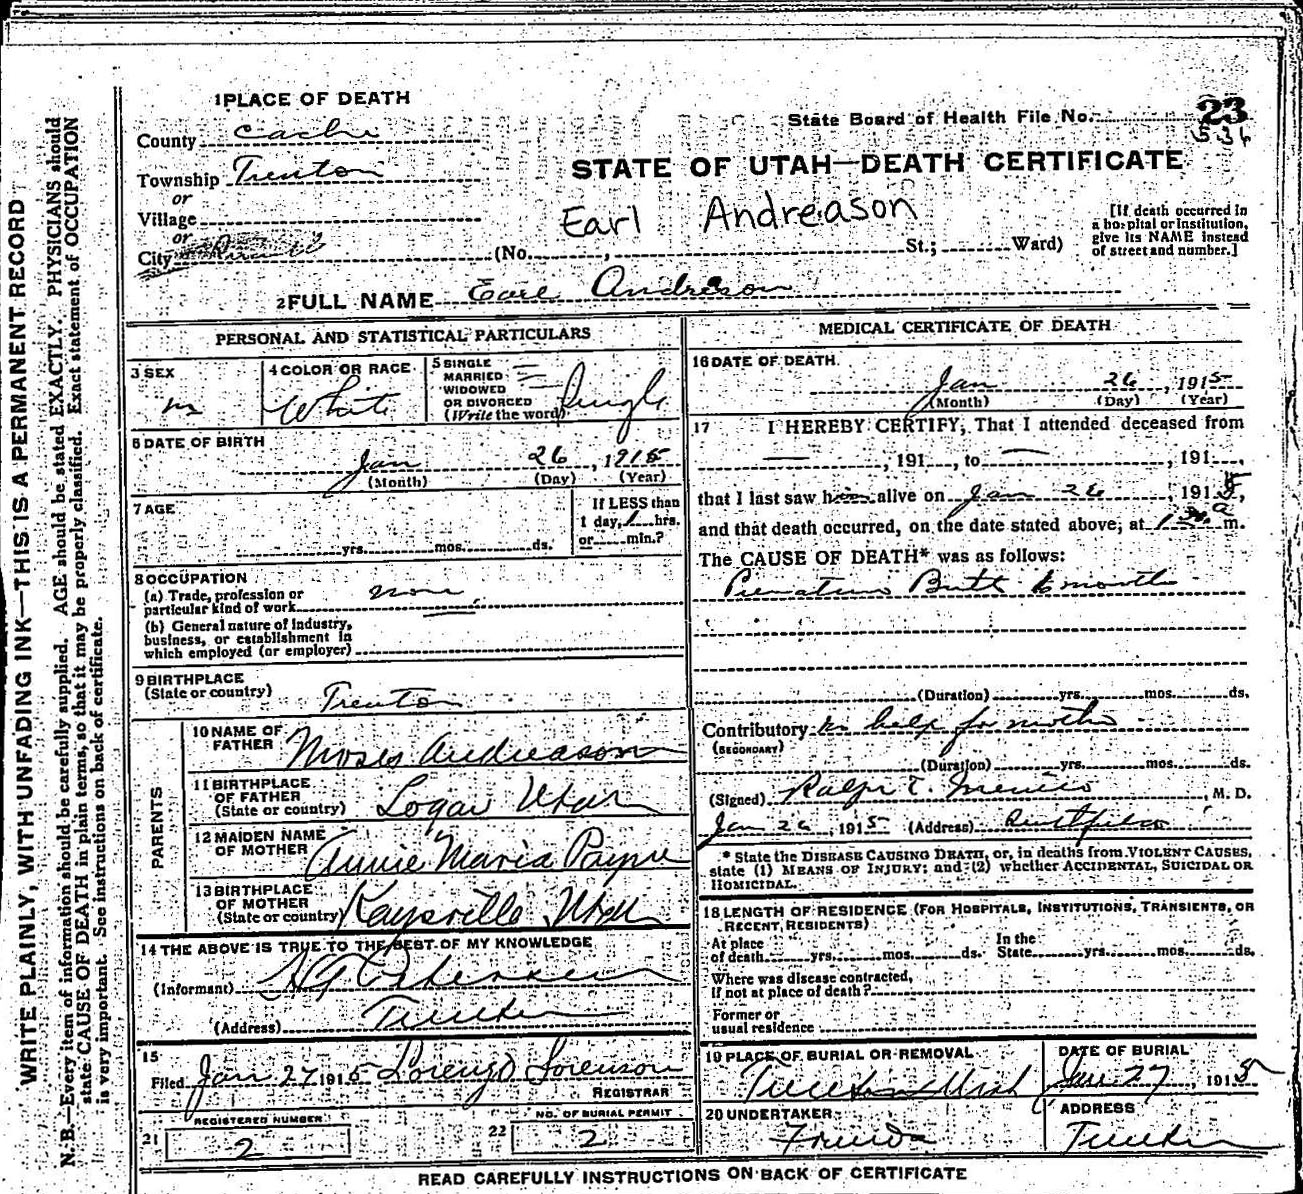 1 PLACE OF DEATH
County Cache
Township Trenton
or
Village
or
City
State Board of Health File No. 23
536
STATE OF UTAH—DEATH CERTIFICATE
Earl Andreason
(No. , St.; Ward)
[If death occurred in
a hospital or institution,
give its NAME instead
of street and number.]
2 FULL NAME Earl Andreson
PERSONAL AND STATISTICAL PARTICULARS
3 SEX
m
4 COLOR OR RACE
White
5 SINGLE
MARRIED
WIDOWED
OR DIVORCED
(Write the word)
Single
6 DATE OF BIRTH
Jan 26, 1915
(Month) (Day) (Year)
7 AGE
yrs. mos. ds.
If LESS than
1 day, 1 hrs.
or min.?
8 OCCUPATION
(a) Trade, profession or
particular kind of work none
(b) General nature of Industry,
business, or establishment in
which employed (or employer)
9 BIRTHPLACE
(State or country) Trenton
PARENTS
10 NAME OF
FATHER Moses Andreason
11 BIRTHPLACE
OF FATHER
(State or country) Logan Utah
12 MAIDEN NAME
OF MOTHER Annie Maria Payne
13 BIRTHPLACE
OF MOTHER
(State or country) Kaysville Utah
14 THE ABOVE IS TRUE TO THE BEST OF MY KNOWLEDGE
(Informant)
(Address) Trenton
15
Filed Jan 27 1915 Lorenzo Sorenson
REGISTRAR
REGISTERED NUMBER
21 2
NO. OF BURIAL PERMIT
22 2
MEDICAL CERTIFICATE OF DEATH
16 DATE OF DEATH
Jan 26, 1915
(Month) (Day) (Year)
17 I HEREBY CERTIFY, That I attended deceased from
— , 191 , to — , 191 ,
that I last saw him alive on Jan 26, 1915,
and that death occurred, on the date stated above, at 1 30 a m.
The CAUSE OF DEATH* was as follows:
Premature Birth 6 months
(Duration) yrs. mos. ds.
Contributory no help for mother
(SECONDARY)
(Duration) yrs. mos. ds.
(Signed) Ralph T. , M. D.
Jan 26, 1915 (Address)
* State the DISEASE CAUSING DEATH, or, in deaths from VIOLENT CAUSES,
state (1) MEANS OF INJURY; and (2) whether ACCIDENTAL, SUICIDAL OR
HOMICIDAL.
18 LENGTH OF RESIDENCE (FOR HOSPITALS, INSTITUTIONS, TRANSIENTS, OR
RECENT RESIDENTS)
At place
of death yrs. mos. ds.
In the
State yrs. mos. ds.
Where was disease contracted,
If not at place of death?
Former or
usual residence
19 PLACE OF BURIAL OR REMOVAL
Trenton Utah
DATE OF BURIAL
Jan 27, 1915
20 UNDERTAKER
Friends
ADDRESS
Trenton
READ CAREFULLY INSTRUCTIONS ON BACK OF CERTIFICATE
WRITE PLAINLY, WITH UNFADING INK—THIS IS A PERMANENT RECORD
N. B.—Every item of information should be carefully supplied. AGE should be stated EXACTLY. PHYSICIANS should
state CAUSE OF DEATH in plain terms, so that it may be properly classified. Exact statement of OCCUPATION
is very important. See instructions on back of certificate.